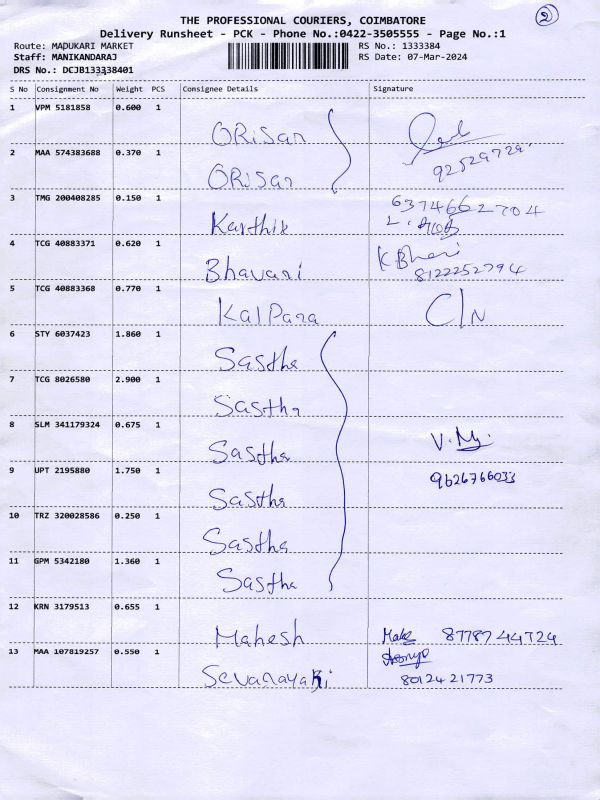 2
THE PROFESSIONAL COURIERS, COIMBATORE
Delivery Runsheet - PCK - Phone No.:0422-3505555 - Page No.:1
Route: MADUKARI MARKET RS No.: 1333384
Staff: MANIKANDARAJ RS Date: 07-Mar-2024
DRS No.: DCJB133338401
S No Consignment No Weight PCS Consignee Details Signature
1 VPM 5181858 0.600 1
ORisan
92529729
2 MAA 574383688 0.370 1
ORisan
3 TMG 200408285 0.150 1 6374662704
Karthik
4 TCG 40883371 0.620 1
Bhavani 8122252794
5 TCG 40883368 0.770 1
Kalpana C/N
6 STY 6037423 1.860 1
Sastha
7 TCG 8026580 2.900 1
Sastha
8 SLM 341179324 0.675 1
Sastha
9 UPT 2195880 1.750 1 9626766033
Sastha
10 TRZ 320028586 0.250 1
Sastha
11 GPM 5342180 1.360 1
Sastha
12 KRN 3179513 0.655 1
Mahesh 8778744724
13 MAA 107819257 0.550 1
Sevanayaki 8012421773